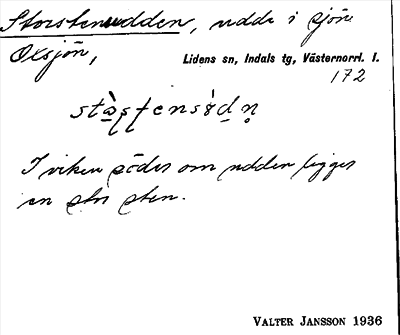 Storstensudden, udde i sjön
Oxsjön,
Lidens sn, Indals tg, Västernorrl. l.
172
I viken söder om udden ligger
en stor sten.
VALTER JANSSON 1936